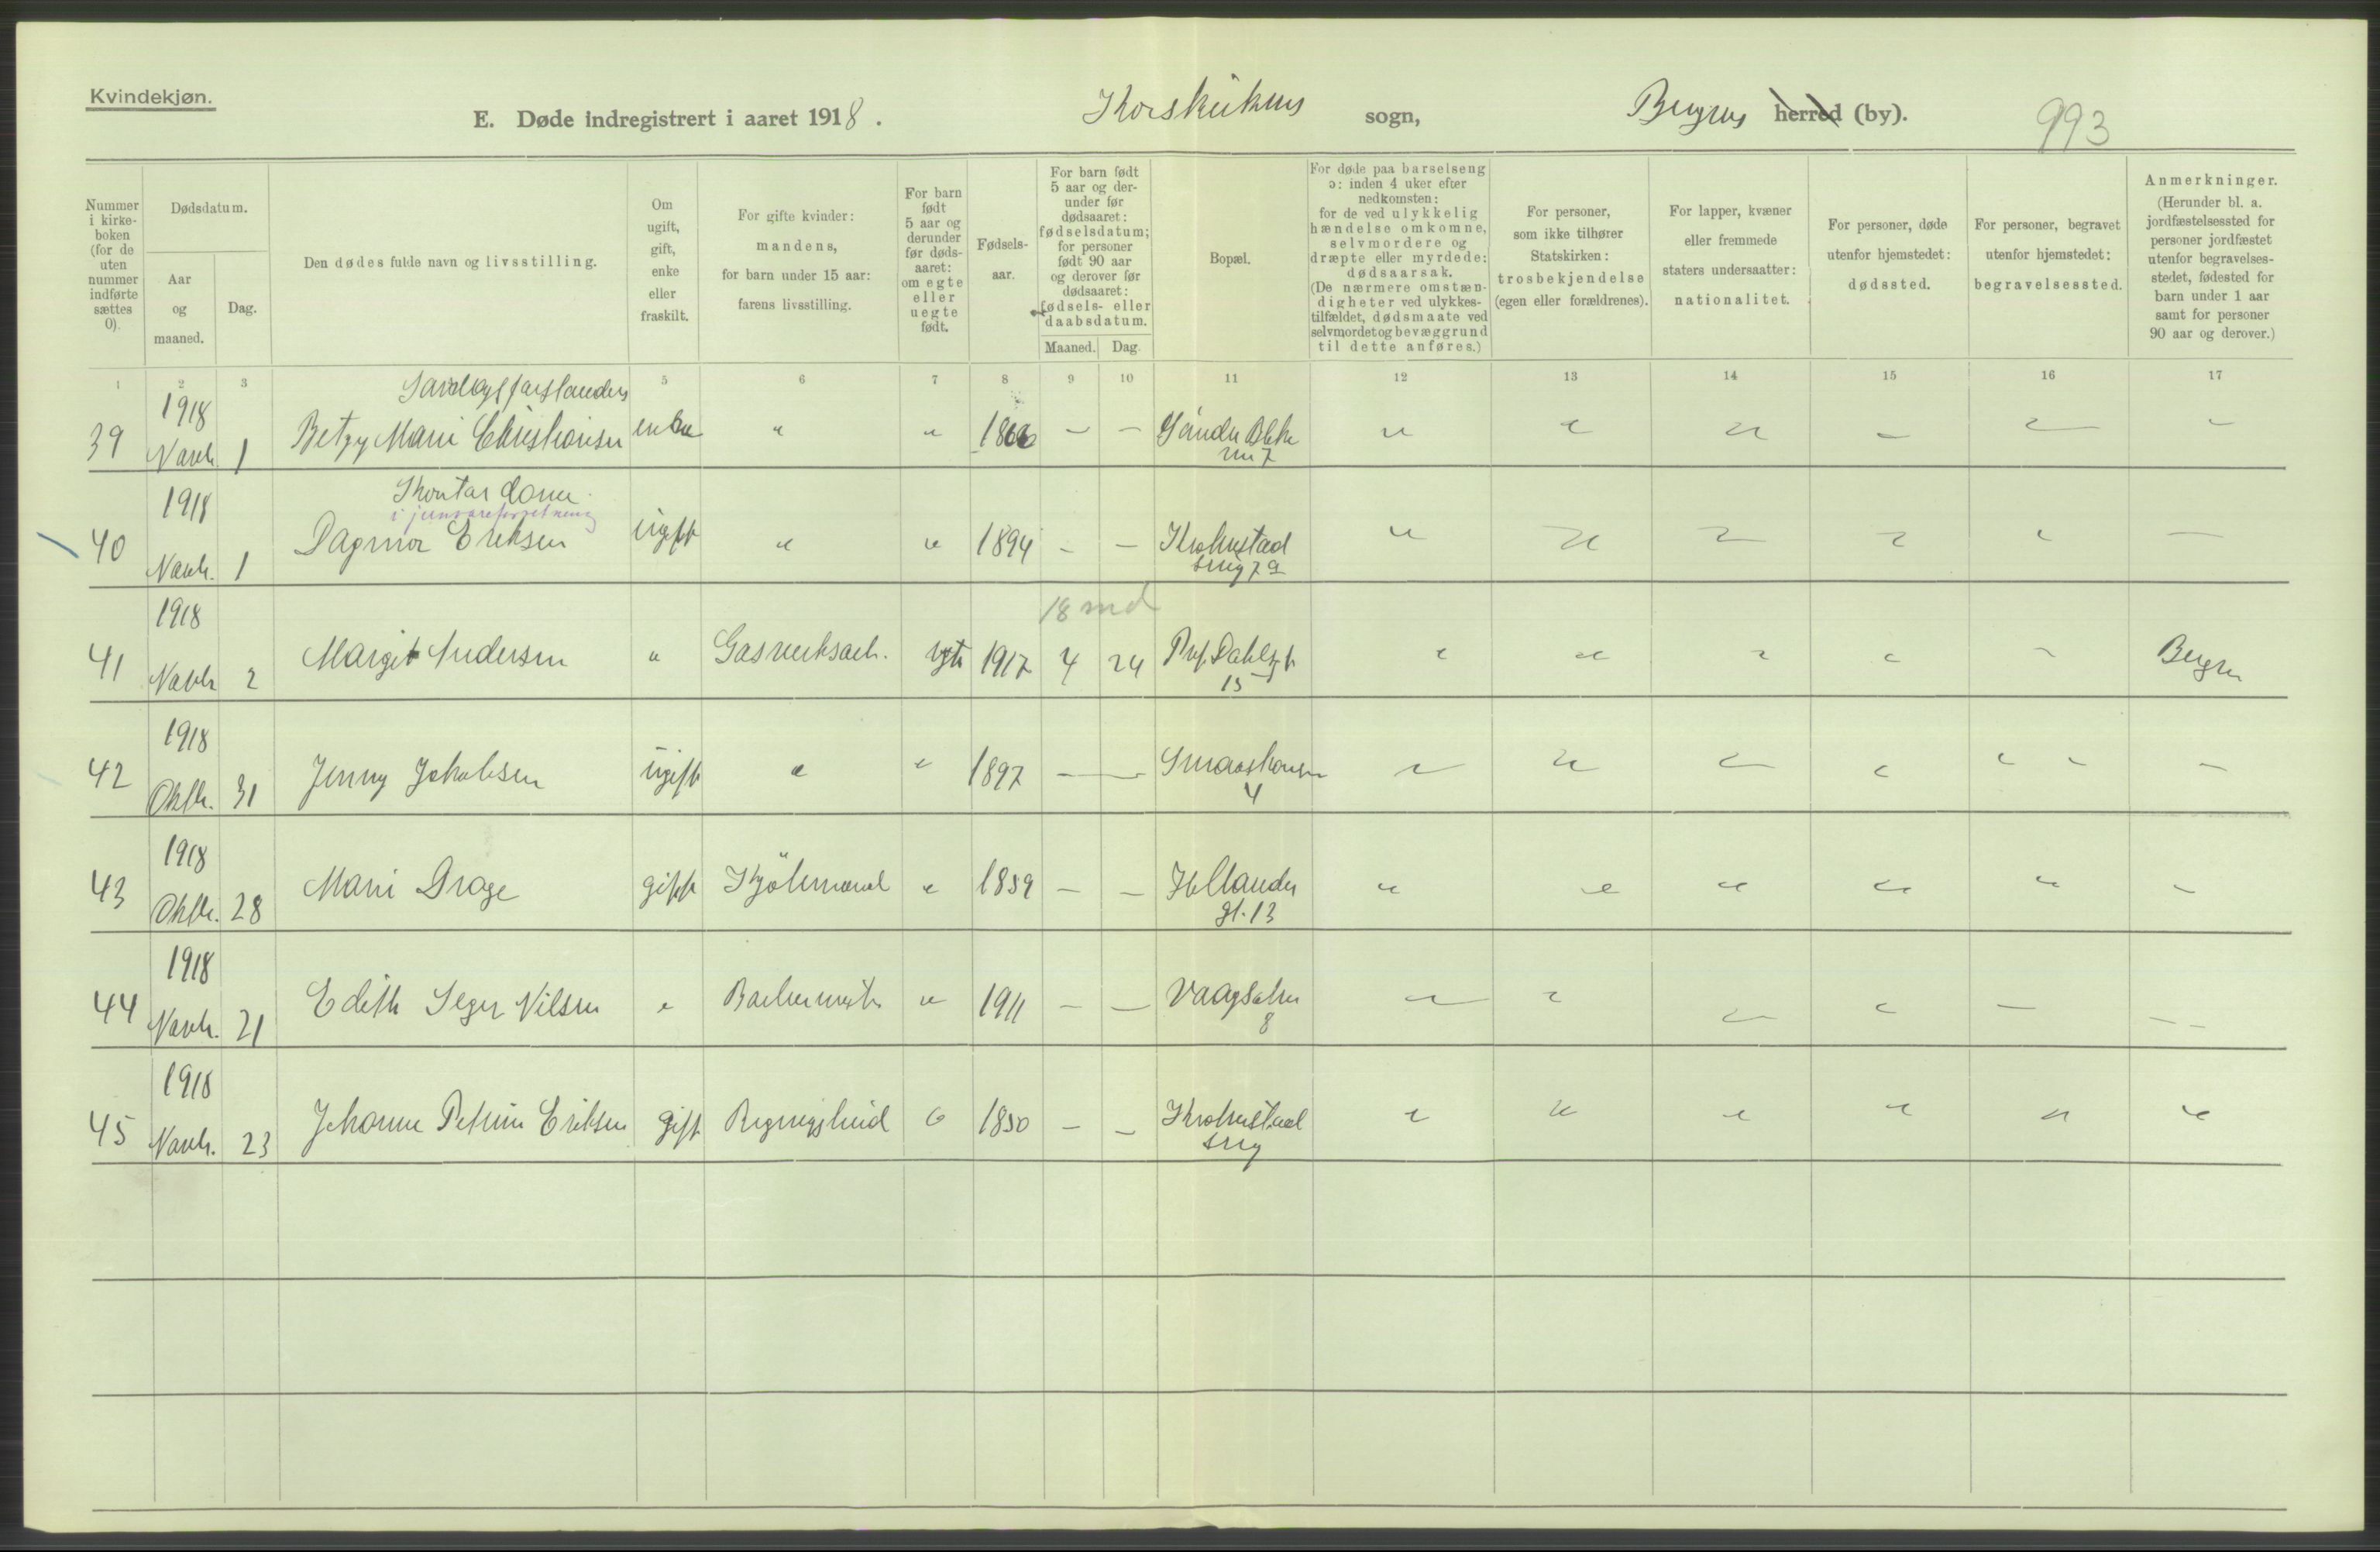 Kvindekjøn.
E. Døde indregistrert i aaret 1918.
Korskirkens sogn,
Bergens herred (by).
993
Nummer i kirke- boken (for de uten nummer indførte sættes 0).
Dødsdatum.
Aar og maaned.
Dag.
Den dødes fulde navn og livsstilling.
Om ugift, gift, enke eller fraskilt.
For gifte kvinder: mandens, for barn under 15 aar: farens livsstilling.
For barn født 5 aar og derunder før døds- aaret: om egte eller uegte født.
Fødsels- aar.
For barn født 5 aar og der- under før dødsaaret: fødselsdatum; for personer født 90 aar og derover før dødsaaret: fødsels- eller daabsdatum.
Maaned.
Dag.
Bopæl.
For døde paa barselseng ɔ: inden 4 uker efter nedkomsten: for de ved ulykkelig hændelse omkomne, selvmordere og dræpte eller myrdede: dødsaarsak. (De nærmere omstæn- digheter ved ulykkes- tilfældet, dødsmaate ved selvmordet og bevæggrund til dette anføres.)
For personer, som ikke tilhører Statskirken: trosbekjendelse (egen eller forældrenes).
For lapper, kvæner eller fremmede staters undersaatter: nationalitet.
For personer, døde utenfor hjemstedet: dødssted.
For personer, begravet utenfor hjemstedet: begravelsessted.
Anmerkninger. (Herunder bl. a. jordfæstelsessted for personer jordfæstet utenfor begravelses- stedet, fødested for barn under 1 aar samt for personer 90 aar og derover.)
1 2 3 5 6 7 8 9 10 11 12 13 14 15 16 17
39 1918 Novbr. 1 Betzy Marie Christiansen enke " " 1866 — — " " " — — —
40 1918 Novbr. 1 Kontordame i jernvareforretning Dagmar Eriksen ugift " " 1894 — — Krohnstad smug 7 a " " " " " —
18 md
41 1918 Novbr. 2 Margit Andersen " Gasverksarb. egte 1917 4 24 Prof. Dahlsgt 15 " " " " " Bergen
42 1918 Oktbr. 31 Jenny Jakobsen ugift " " 1897 — — 4 " " " " " —
43 1918 Oktbr. 28 Marie Drage gift Kjøbmand " 1859 — — Hollander gt. 13 " " " " " —
44 1918 Novbr. 21 Edith Nilsen " " 1911 — — 8 " " " " — —
45 1918 Novbr. 23 Johanne Petrine Eriksen gift " 1850 — — Krohnstad smug " " " " " "